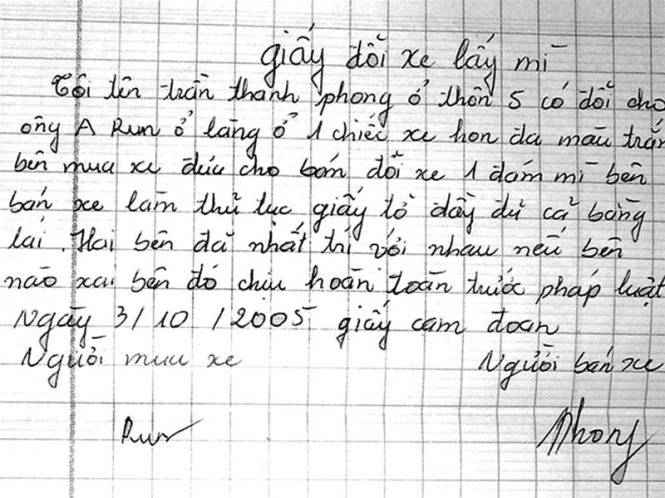 giấy đổi xe lấy mì
Tôi tên trần thanh phong ở thôn 5 có đổi cho
ông A Run ở làng ổ 1 chiếc xe hon da màu trắn
bên mua xe đưa cho bán đổi xe 1 đám mì bên
bán xe làm thủ tục giấy tờ đầy đủ cả bằng
lái. Hai bên đã nhất trí với nhau nếu bên
nào xai bên đó chiu hoàn toàn trước pháp luật
Ngày 3/10/2005 giấy cam đoan
Người mua xe Người bán xe
Run Phong